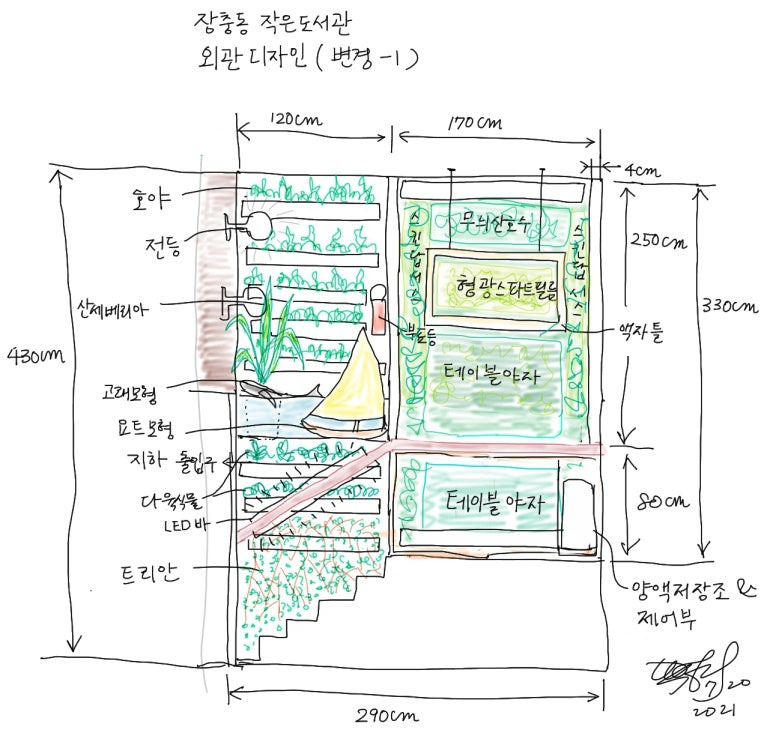 장충동 작은도서관
외관 디자인 ( 변경 -1 )
120cm
170cm
4cm
호야
전등
산세베리아
430cm
고래모형
요트모형
지하 출입구
다육식물
LED바
트리안
부표등
스킨답서스
무늬산호수
스킨답서스
형광스파트필름
테이블야자
테이블야자
250cm
330cm
액자틀
80cm
양액저장조 &
제어부
290cm
7 20
2021